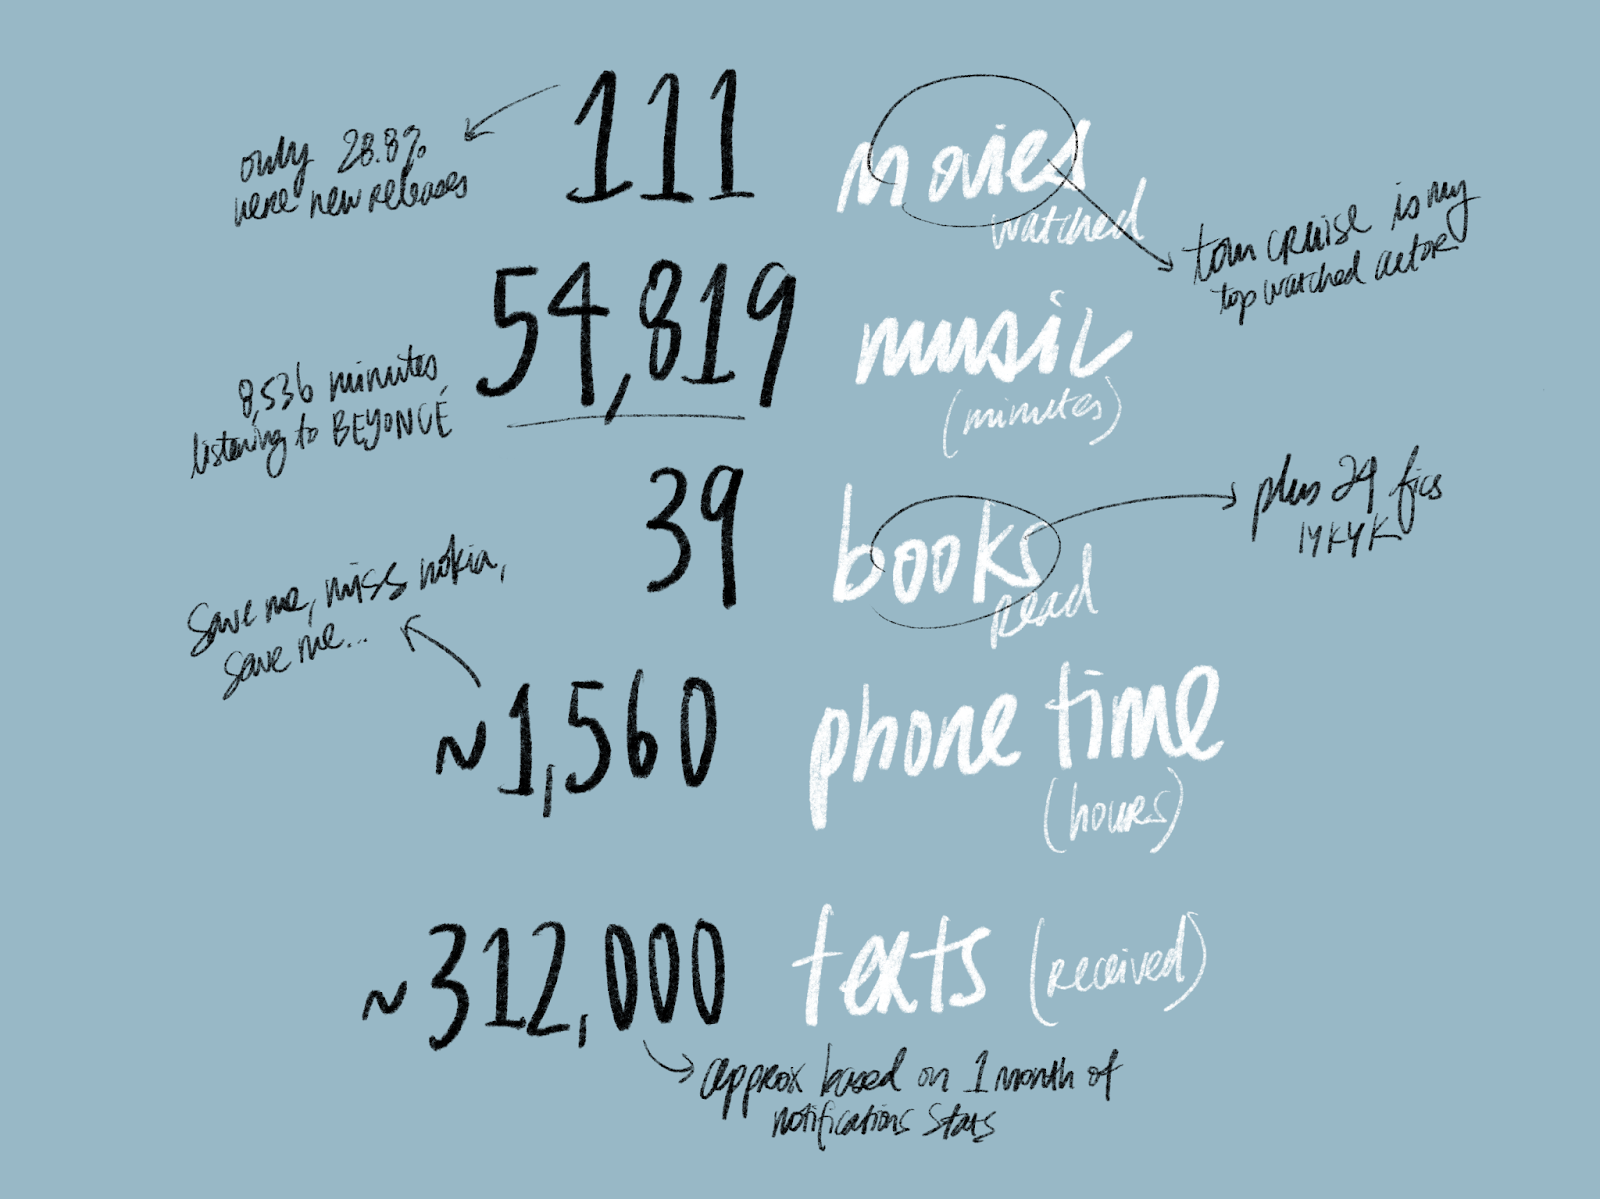 111 movies
watched
only 28.8%
were new releases
tom cruise is my
top watched actor
54,819 music
(minutes)
8,536 minutes
listening to BEYONCÉ
39 books
read
plus 29 fics
IYKYK
save me, miss nokia,
save me...
~1,560 phone time
(hours)
~312,000 texts (received)
approx based on 1 month of
notifications stats